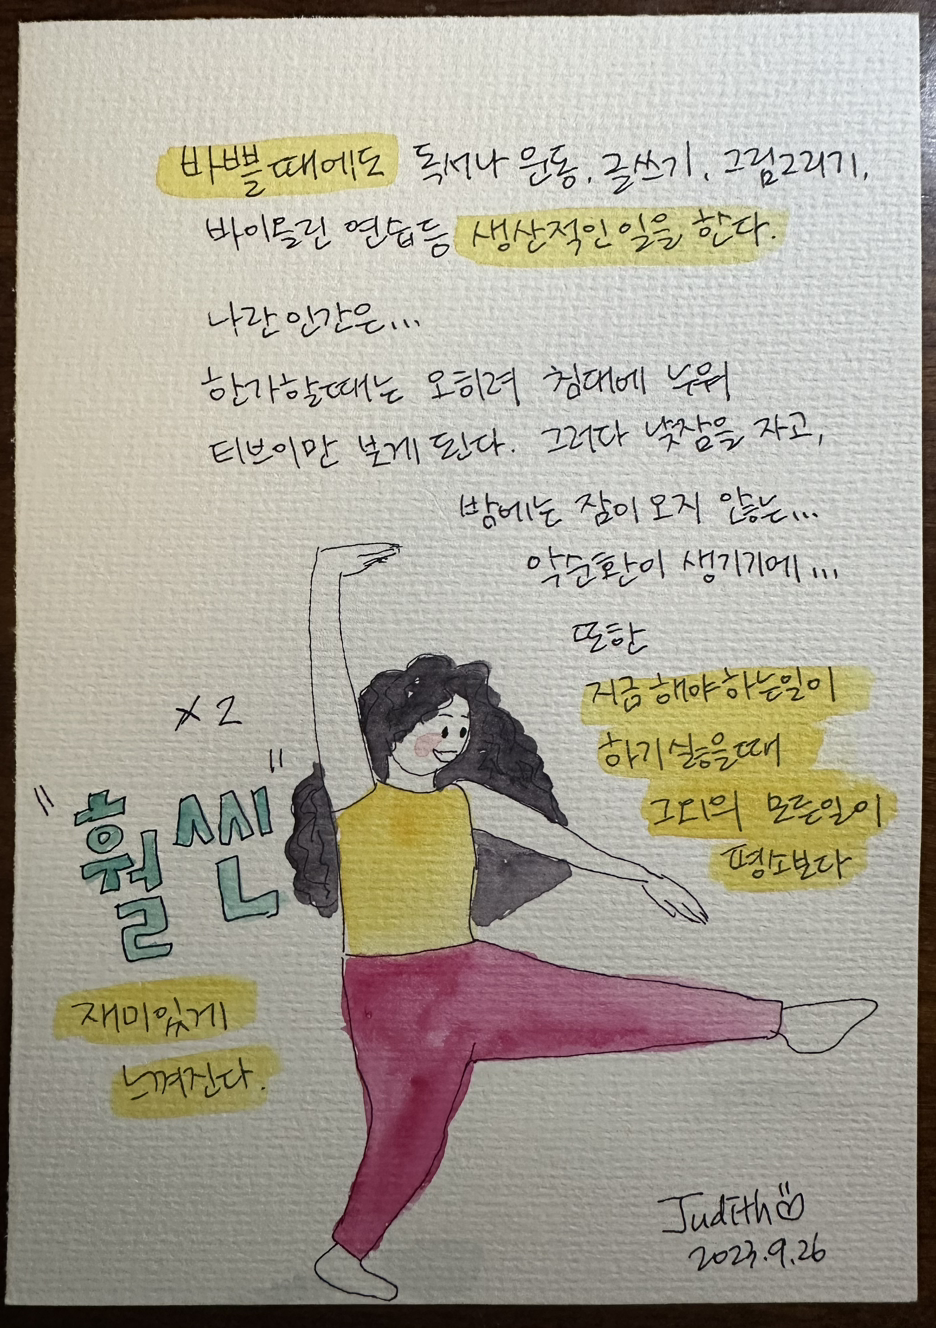 바쁠때에도 독서나 운동, 글쓰기, 그림그리기,
바이올린 연습등 생산적인 일을 한다.
나란 인간은...
한가할때는 오히려 침대에 누워
티브이만 보게 된다. 그러다 낮잠을 자고,
밤에는 잠이 오지 않는...
악순환이 생기기에...
또한
지금 해야하는일이
하기 싫을때
그외의 모든일이
평소보다
x2
"훨씬"
재미있게
느껴진다.
Judith
2023.9.26